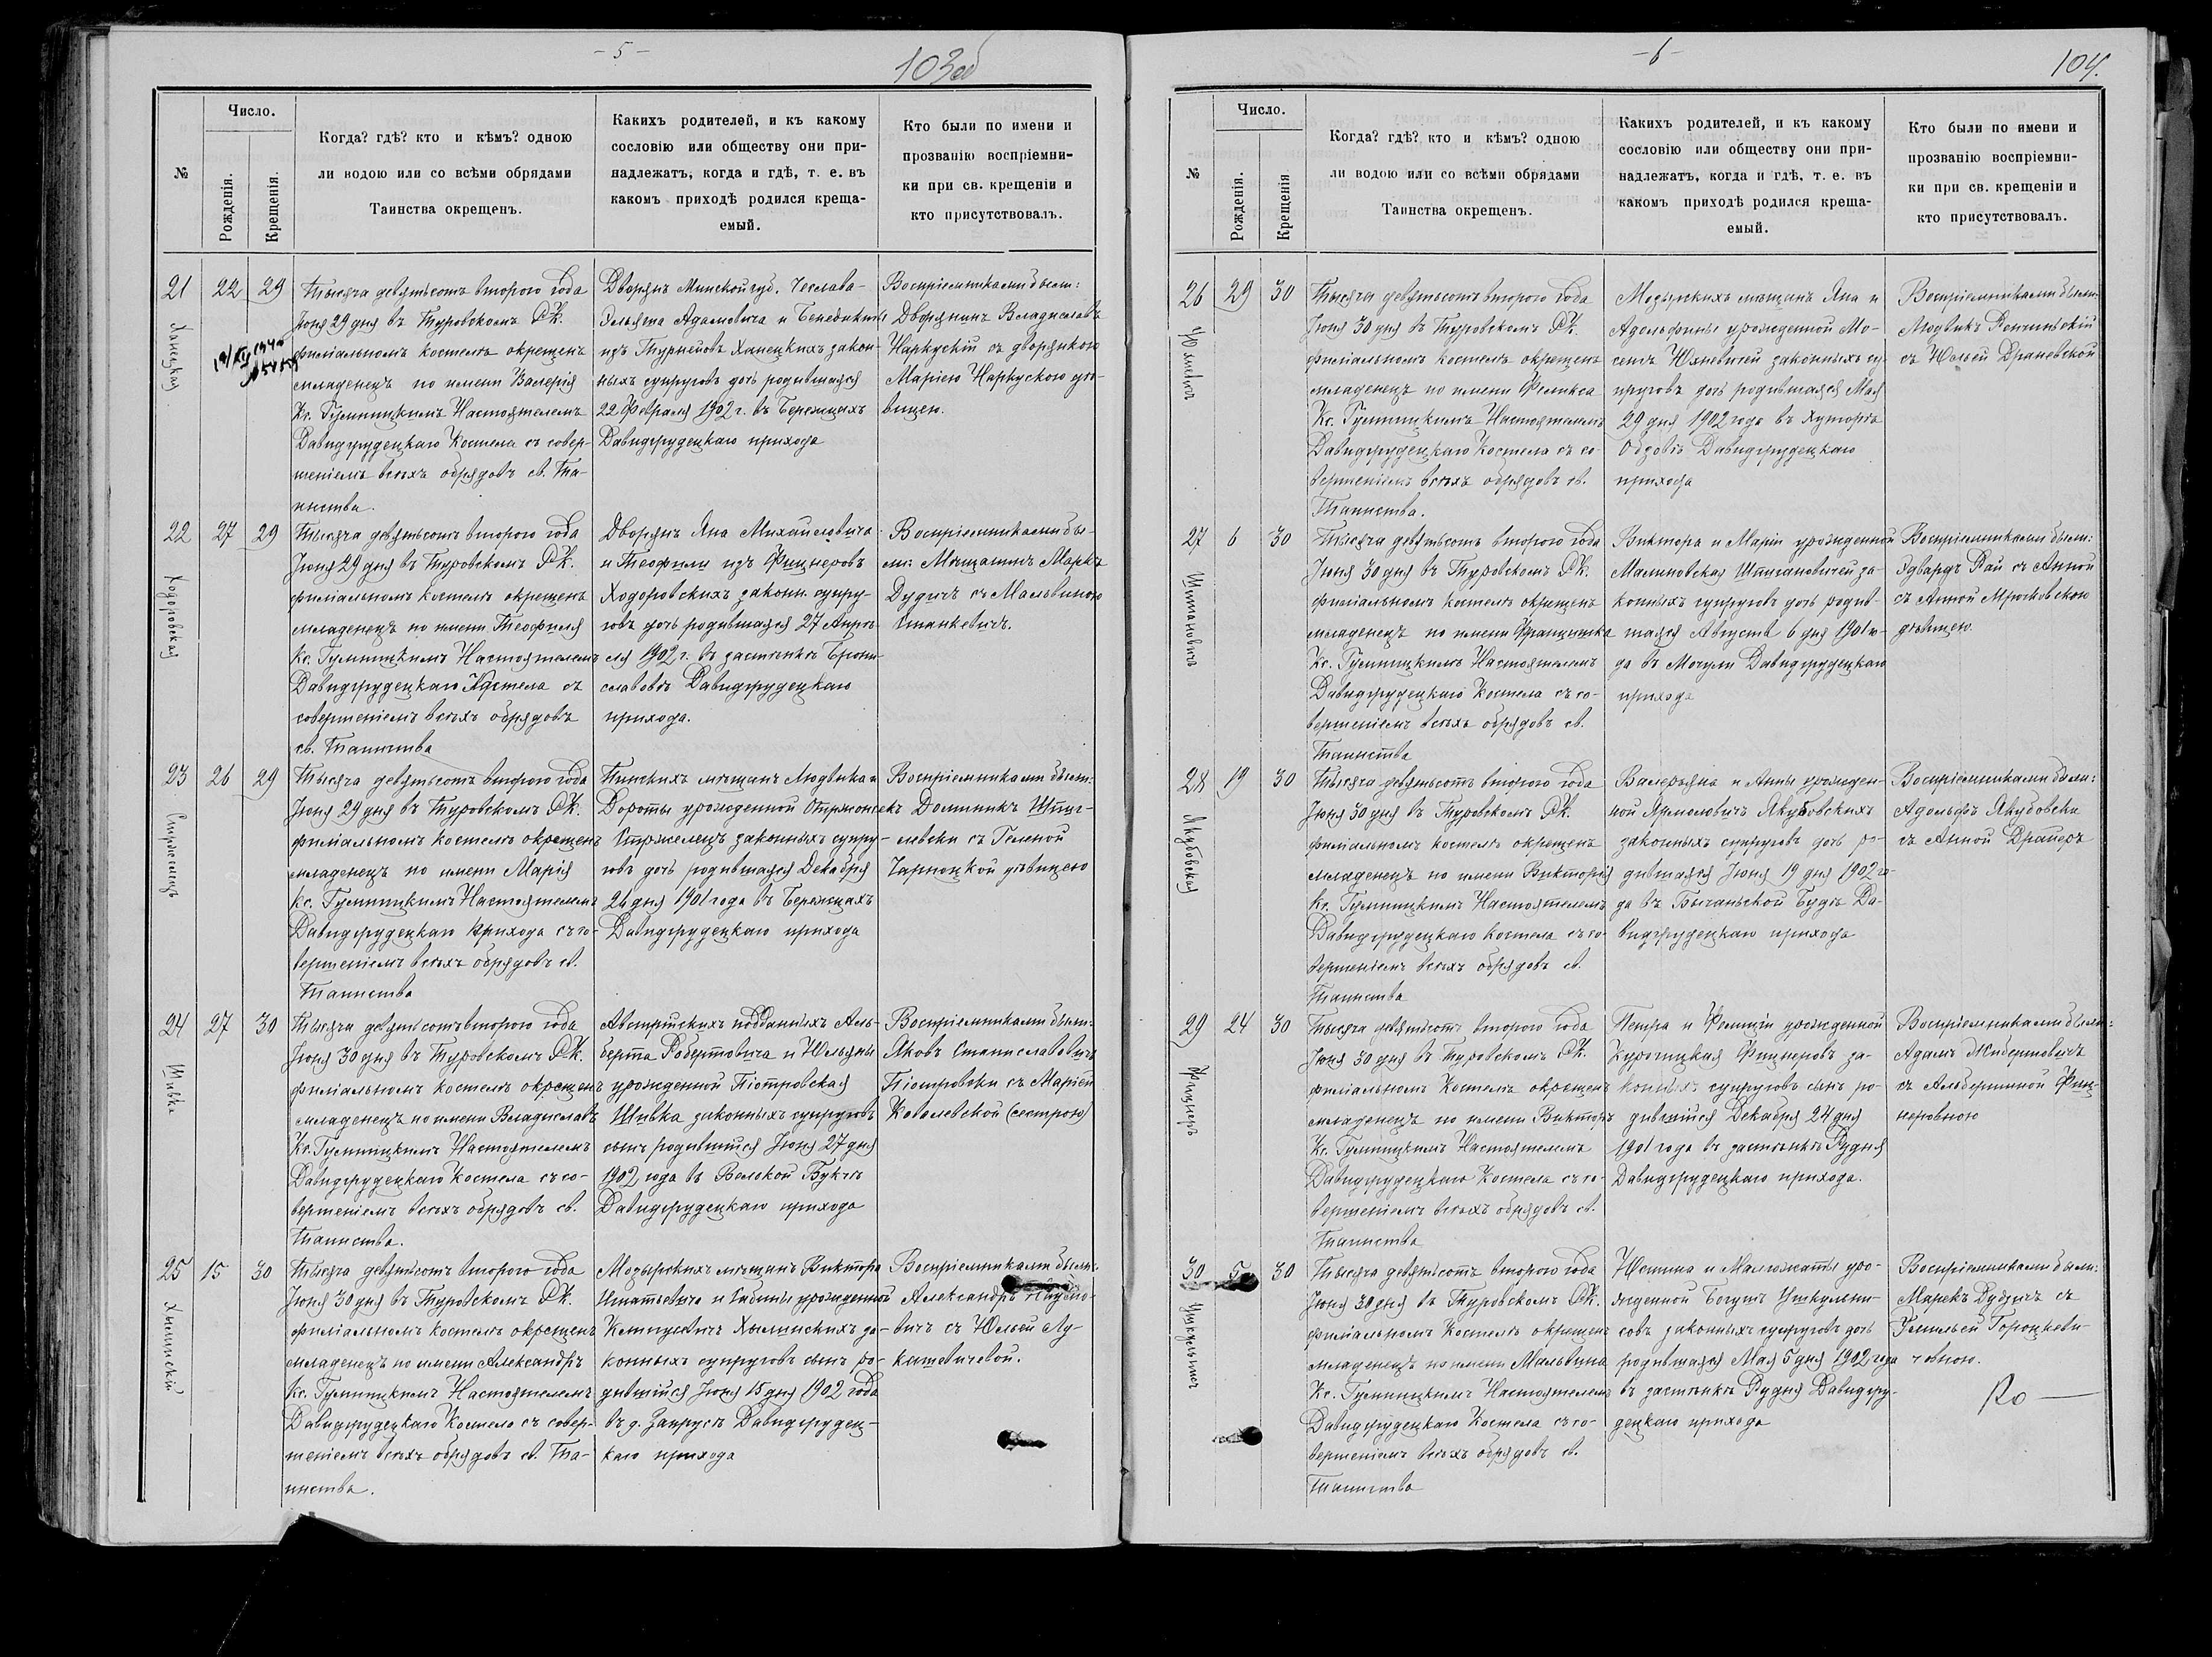 - 5 -
103об
Число.
№
Рожденія.
Крещенія.
Когда? гдѣ? кто и кѣмъ? одною
ли водою или со всѣми обрядами
Таинства окрещенъ.
Каихъ родителей, и къ какому
сословію или обществу они при-
надлежатъ, когда и гдѣ, т. е. въ
какомъ приходѣ родился креща-
емый.
Кто были по имени и
прозванію воспріемни-
ки при св. крещеніи и
кто присутствовалъ.
21 22 29
Ханецкая
Тысяча девятьсотъ второго года
Іюня 29 дня въ Туровскомъ РК.
филіальномъ костелѣ окрещенъ
младенецъ по имени Валерія
Кс. Гумницкимъ Настоятелемъ
Давидгрудецкаго Костела съ совер-
шеніемъ всѣхъ обрядовъ св. Та-
инства.
Дворянъ Минской губ. Чеслава-
Эльяша Адамовича и Бенедикты
изъ Турцевовъ Ханецкихъ закон-
ныхъ супруговъ дочь родившаяся
22 Февраля 1902 г. въ Бережцахъ
Давидгрудецкаго прихода
Воспріемниками были:
Дворянинъ Владиславъ
Наркускій съ дворянкою
Маріею Наркускою дѣ-
вицею.
22 27 29
Ходоровская
Тысяча девятьсотъ второго года
Іюня 29 дня въ Туровскомъ РК.
филіальномъ костелѣ окрещенъ
младенецъ по имени Теофиля
Кс. Гумницкимъ Настоятелемъ
Давидгрудецкаго Костела съ
совершеніемъ всѣхъ обрядовъ
св. Таинства
Дворянъ Яна Михайловича
и Теофили изъ Фицнеровъ
Ходоровскихъ законн. супру-
говъ дочь родившаяся 27 Апрѣ-
ля 1902 г. въ застѣнкѣ Брони-
славовѣ Давидгрудецкаго
прихода.
Воспріемниками бы-
ли: Мѣщанинъ Маркъ
Дудичъ съ Мальвиною
Станкевичъ.
23 26 29
Стржелецъ
Тысяча девятьсотъ второго года
Іюня 29 дня въ Туровскомъ РК.
филіальномъ костелѣ окрещенъ
младенецъ по имени Марія
Кс. Гумницкимъ Настоятелемъ
Давидгрудецкаго прихода съ со-
вершеніемъ всѣхъ обрядовъ св.
Таинства
Пинскихъ мѣщанъ Людвика и
Дороты урожденной
Стржелецъ законныхъ супру-
говъ дочь родившаяся Декабря
26 дня 1901 года въ Бережцахъ
Давидгрудецкаго прихода
Воспріемниками были:
Доминикъ
левски съ Геленой
Чарноцкой дѣвицею
24 27 30
Шивка
Тысяча девятьсотъ второго года
Іюня 30 дня въ Туровскомъ РК.
филіальномъ костелѣ окрещенъ
младенецъ по имени Владиславъ
Кс. Гумницкимъ Настоятелемъ
Давидгрудецкаго Костела съ со-
вершеніемъ всѣхъ обрядовъ св.
Таинства.
Австрійскихъ подданныхъ Аль-
берта Робертовича и Юльяны
урожденной Піотровская
Шивка законныхъ супруговъ
сынъ родившійся Іюня 27 дня
1902 года въ Велокой Букчѣ
Давидгрудецкаго прихода
Воспріемниками были:
Яковъ Станиславовичъ
Піотровски съ Маріей
Ковалевской (сестрою)
25 15 30
Хылинскій
Тысяча девятьсотъ второго года
Іюня 30 дня въ Туровскомъ РК.
филіальномъ костелѣ окрещенъ
младенецъ по имени Александръ
Кс. Гумницкимъ Настоятелемъ
Давидгрудецкаго Костела съ совер-
шеніемъ всѣхъ обрядовъ св. Та-
инства.
Мозырскихъ мѣщанъ Виктора
Игнатьевича и Сабины урожденной
Хылинскихъ за-
конныхъ супруговъ сынъ ро-
дившійся Іюня 15 дня 1902 года
въ д. Запрусѣ Давидгрудец-
каго прихода
Воспріемниками были:
Александръ
вичъ съ Юльей Лу-
кашевичевой.
- 6 -
104.
Число.
№
Рожденія.
Крещенія
Когда? гдѣ? кто и кѣмъ? одною
ли водою или со всѣми обрядами
Таинства окрещенъ.
Какихъ родителей, и къ какому
сословію или обществу они при-
надлежатъ, когда и гдѣ, т. е. въ
какомъ приходѣ родился креща-
емый.
Кто были по имени и
прозванію воспріемни-
ки при св. крещеніи и
кто присутствовалъ.
26 29 30
Тысяча девятьсотъ второго года
Іюня 30 дня въ Туровскомъ РК.
филіальномъ костелѣ окрещенъ
младенецъ по имени Феликса
Кс. Гумницкимъ Настоятелемъ
Давидгрудецкаго Костела съ со-
вершеніемъ всѣхъ обрядовъ св.
Таинства.
Мозырскихъ мѣщанъ Яна и
Адольфины урожденной Мо-
сенъ Юхневичей законныхъ су-
пруговъ дочь родившаяся Мая
29 дня 1902 года въ Хуторѣ
Озовѣ Давидгрудецкаго
прихода
Воспріемниками были:
Людвикъ
съ Юльей Драневской
27 6 30
Шимановичъ
Тысяча девятьсотъ второго года
Іюня 30 дня въ Туровскомъ РК.
филіальномъ костелѣ окрещенъ
младенецъ по имени Францишка
Кс. Гумницкимъ Настоятелемъ
Давидгрудецкаго Костела съ со-
вершеніемъ всѣхъ обрядовъ св.
Таинства
Виктора и Маріи урожденной
Малиновская за-
конныхъ супруговъ дочь родив-
шаяся Августа 6 дня 1901 го-
да въ Мочули Давидгрудецкаго
прихода
Воспріемниками были:
Эдвардъ Рай съ Анной
съ Анной Мрочковскою
дѣвицею.
28 19 30
Якубовская
Тысяча девятьсотъ второго года
Іюня 30 дня въ Туровскомъ РК.
филіальномъ костелѣ окрещенъ
младенецъ по имени Викторія
Кс. Гумницкимъ Настоятелемъ
Давидгрудецкаго костела съ со-
вершеніемъ всѣхъ обрядовъ св.
Таинства
Валерьяна и Анны урожден-
ной Ярмоловичъ Якубовскихъ
законныхъ супруговъ дочь ро-
дившаяся Іюня 19 дня 1902 го-
да въ Бычаньской Будѣ Да-
видгрудецкаго прихода
Воспріемниками были:
Адольфъ Якубовски
съ Анной Драпезъ
29 24 30
Фицнеръ
Тысяча девятьсотъ второго года
Іюня 30 дня въ Туровскомъ РК.
филіальномъ Костелѣ окрещенъ
младенецъ по имени Викторъ
Кс. Гумницкимъ Настоятелемъ
Давидгрудецкаго Костела съ со-
вершеніемъ всѣхъ обрядовъ св.
Таинства
Петра и Фелиціи урожденной
Курочицкая Фицнеровъ за-
конныхъ супруговъ сынъ ро-
дившійся Декабря 24 дня
1901 года въ застѣнкѣ Рудня
Давидгрудецкаго прихода.
Воспріемниками были:
Адамъ Жибертовичъ
съ Альбертиной Фиц-
неровною
30 5 30
Тысяча девятьсотъ второго года
Іюня 30 дня въ Туровскомъ РК.
филіальномъ Костелѣ окрещенъ
младенецъ по имени Мальвина
Кс. Гумницкимъ Настоятелемъ
Давидгрудецкаго Костела съ со-
вершеніемъ всѣхъ обрядовъ св.
Таинства
Юстина и Малгожаты уро-
жденной Богушъ Ушкульни-
совъ законныхъ супруговъ дочь
родившаяся Мая 5 дня 1902 года
въ застѣнкѣ Рудня Давидгру-
децкаго прихода
Воспріемниками были:
Марекъ Дудичъ съ
Эмильей Городкеви-
човною.